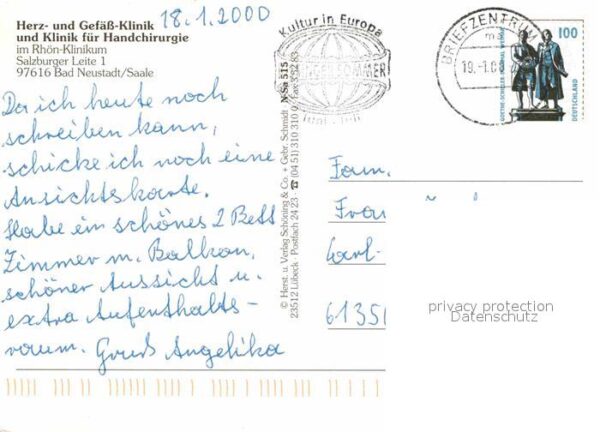 18.1.2000
Herz- und Gefäß-Klinik
und Klinik für Handchirurgie
im Rhön-Klinikum
Salzburger Leite 1
97616 Bad Neustadt/Saale
Da ich heute noch
schreiben kann,
schicke ich noch eine
Ansichtskarte.
Habe ein schönes 2 Bett
Zimmer m. Balkon,
schöner Aussicht u.
extra Aufenthalts-
raum. Gruß Angelika
© Herst. u. Verlag Schöning & Co. + Gebr. Schmidt N-Sa 515
23512 Lübeck · Postfach 24 23 ☎ (04 51) 310 310
Kultur in Europa
BRIEFZENTRUM
19.-1.0
100
DEUTSCHLAND
Fam.
Frau
Carl-
6135
privacy protection
Datenschutz